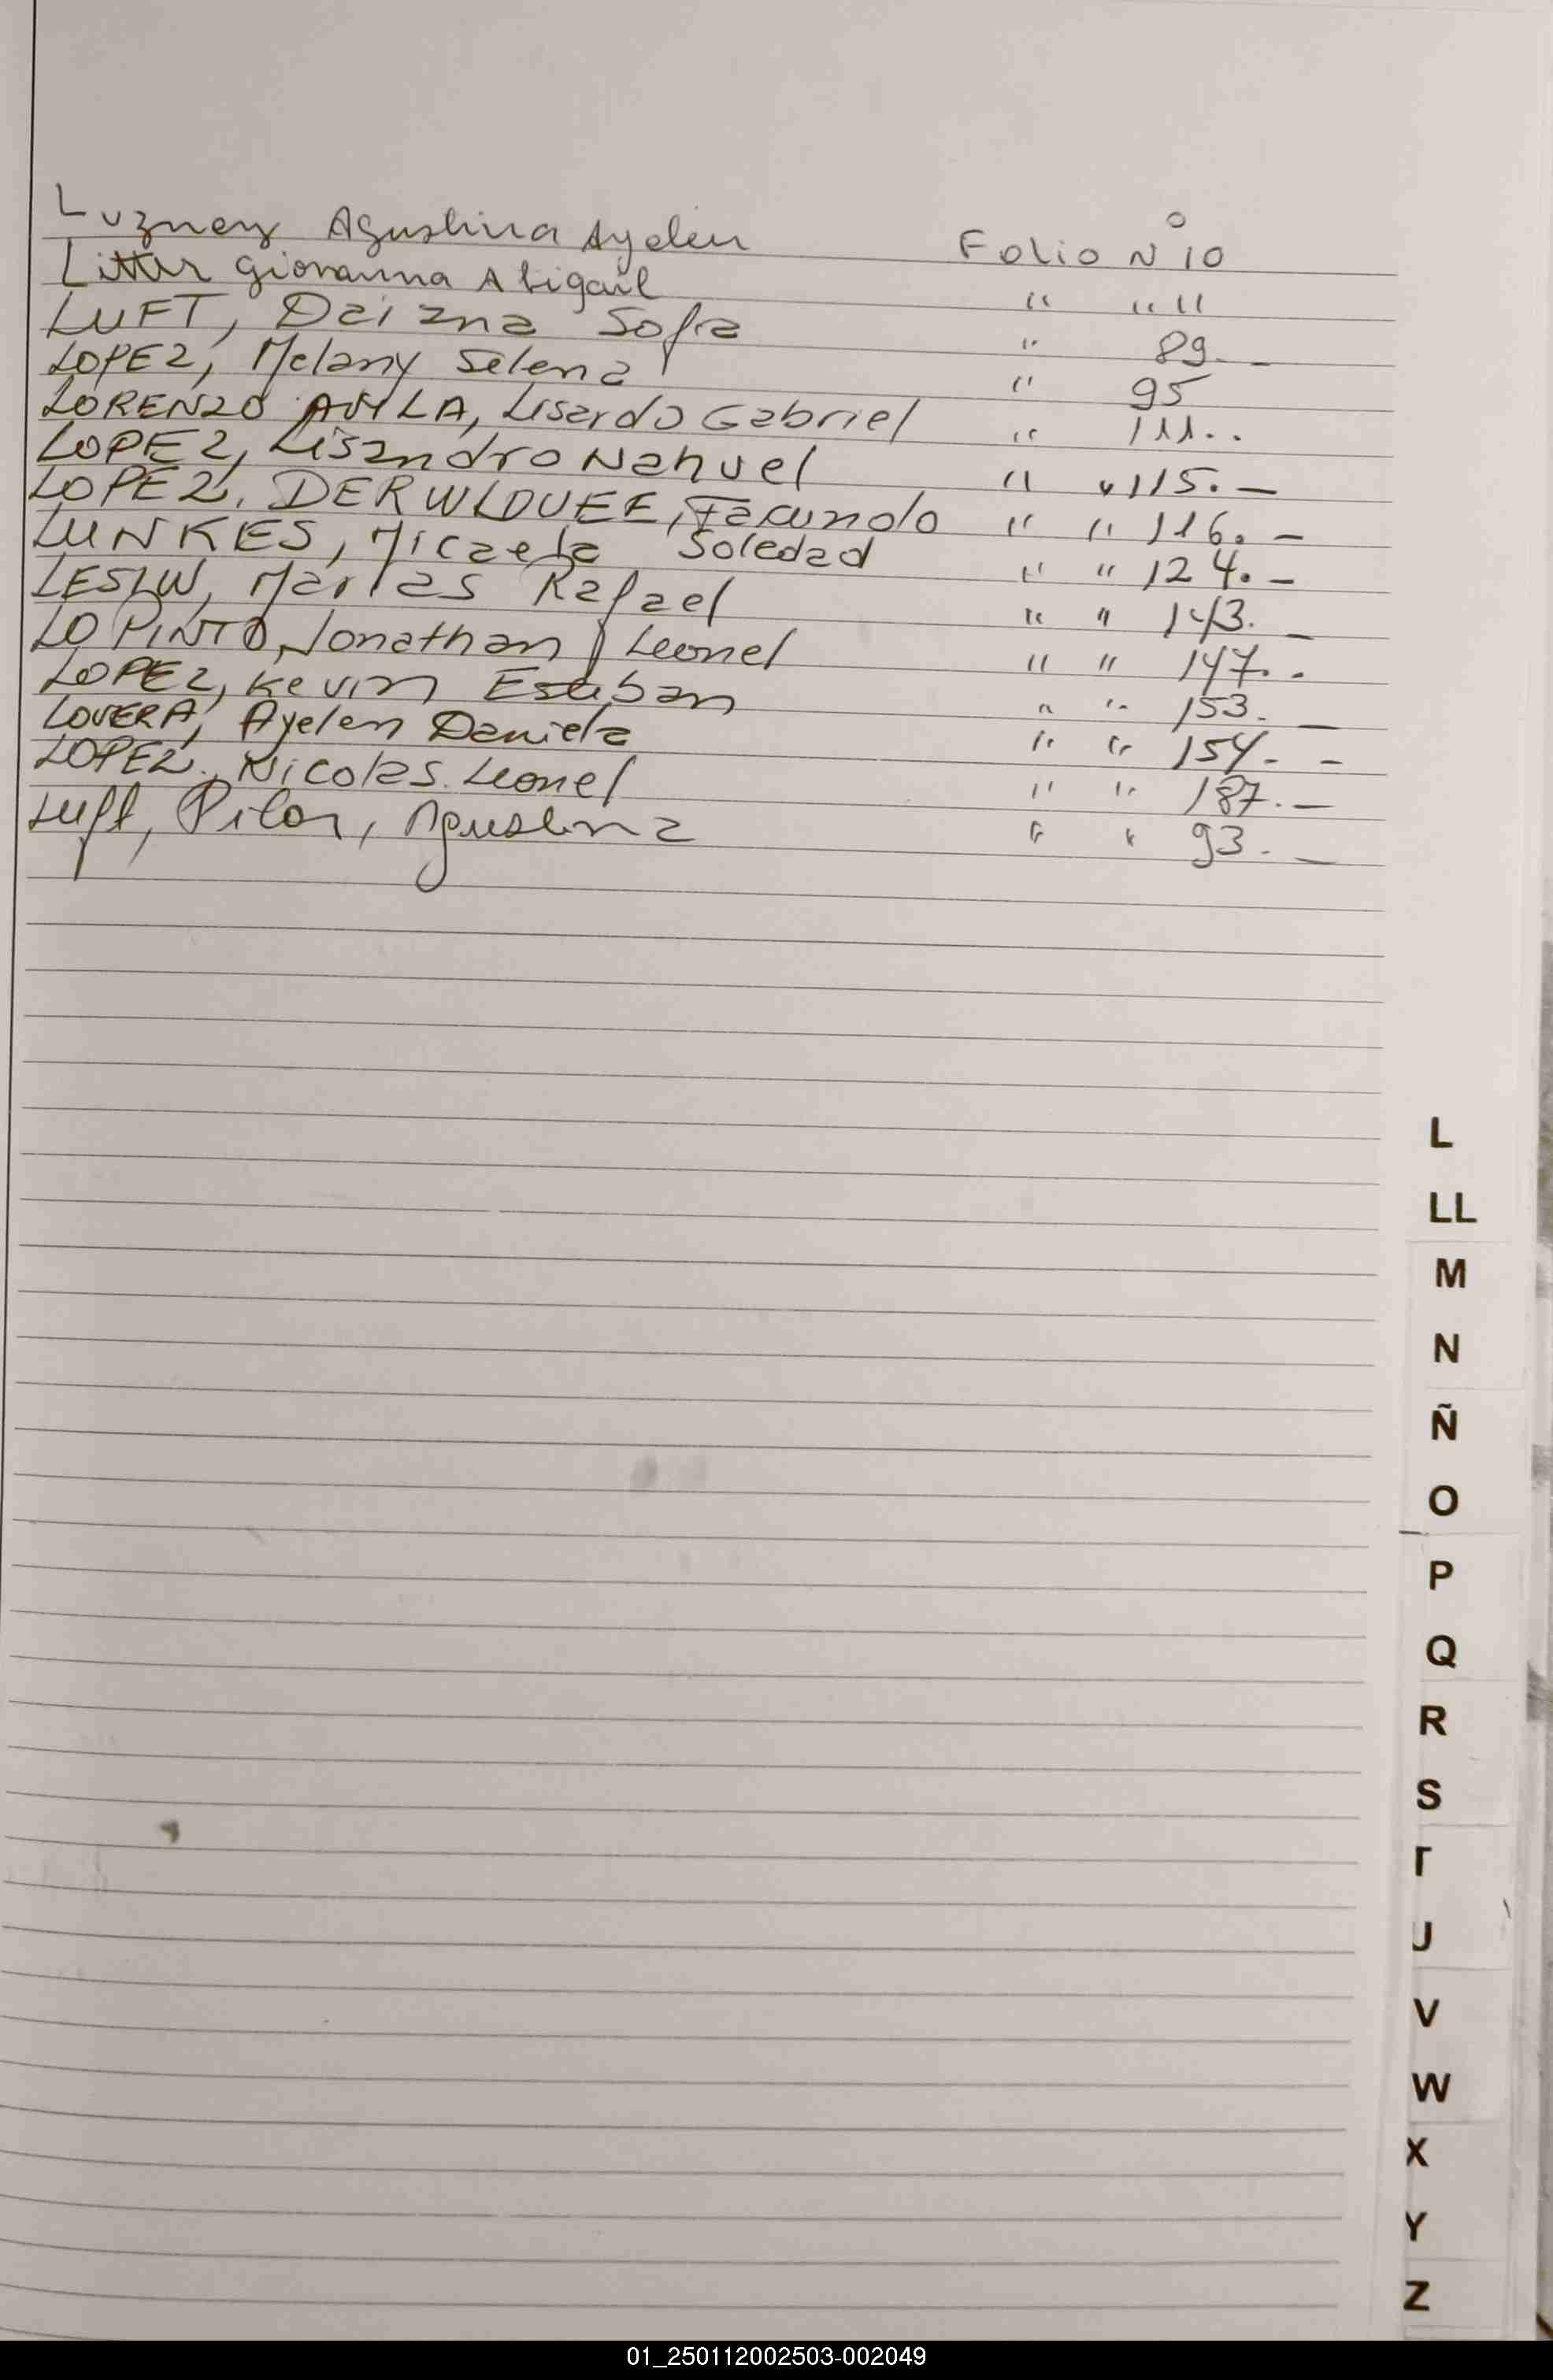 Luzney Agustina Ayelen Folio N° 10
Litter Giovanna Abigail " " 11
LUFT, Daiana Sofia " 89. -
LOPEZ, Melany Selena " 95
LORENZO AVILA, Lisardo Gabriel " 111..
LOPEZ, Lisandro Nahuel " " 115. -
LOPEZ, Facundo " " 116. -
LUNKES, Micaela Soledad " " 124. -
Rafael " " 143. -
LO PINTO, Jonathan Leonel " " 147. -
LOPEZ, Kevin Esteban " " 153. -
LOVERA, Ayelen Daniela " " 154. -
LOPEZ, Nicolas Leonel " " 187. -
Luft, Pilar, Agustina " " 93. -
L
LL
M
N
Ñ
O
P
Q
R
S
T
U
V
W
X
Y
Z
01_250112002503-002049